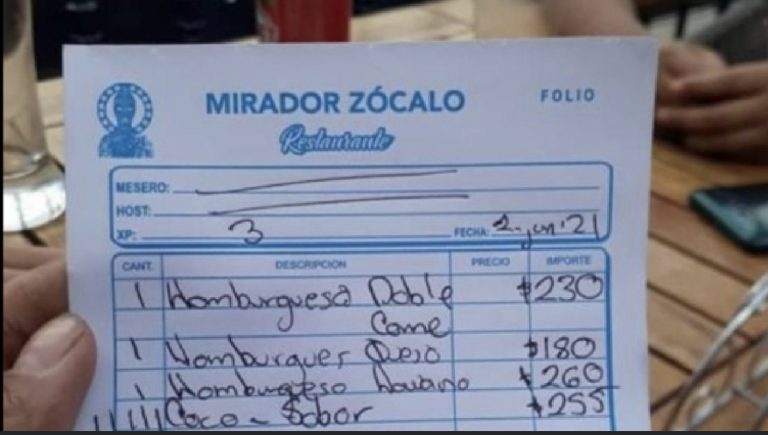 MIRADOR ZÓCALO
Restaurante
FOLIO
MESERO:
HOST:
XP: 3 FECHA: 2-jun'21
CANT. DESCRIPCION PRECIO IMPORTE
1 Hamburguesa Doble $230
Carne
1 Hamburgues Queso $180
1 Hamburgueso $260
11111 Coco - Sabor $255